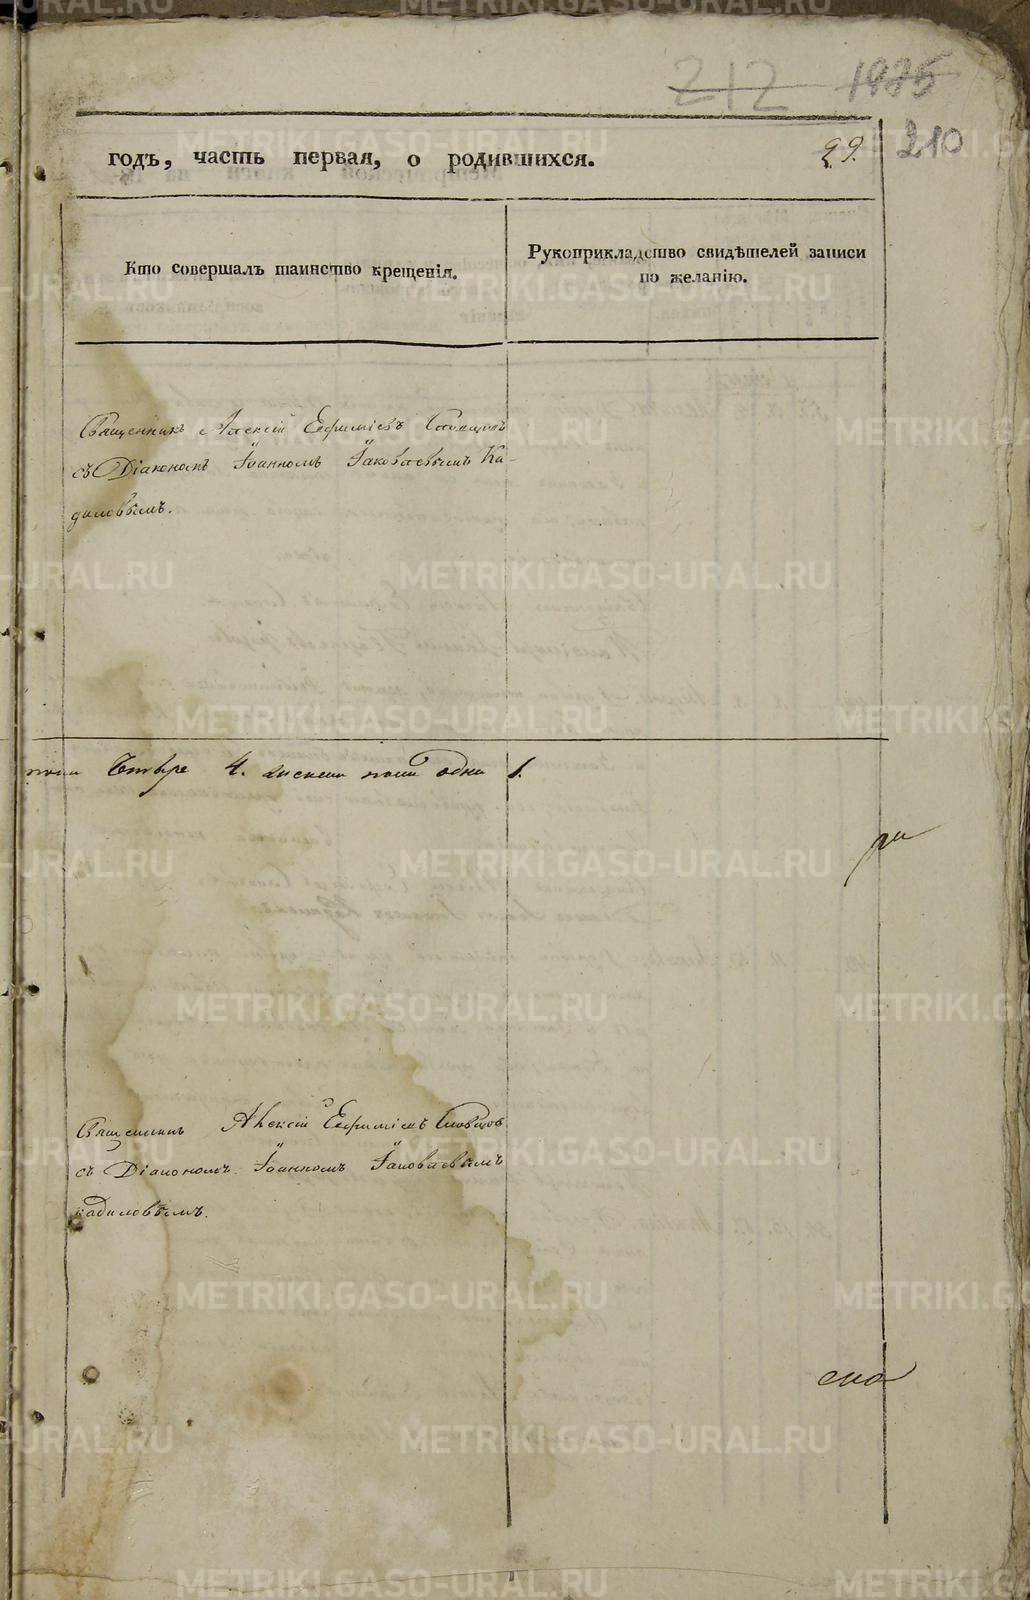 212 1975
годъ, часть первая, о родившихся. 29. 210
Кто совершалъ таинство крещенія.
Рукоприкладство свидѣтелей записи
по желанію.
Священникъ Алексій Ефиміевъ Словцовъ
съ Діакономъ Іоанномъ Іаковлевымъ Ка-
диловымъ.
4. женска пола одна 1.
Священникъ Алексій Ефиміевъ Словцовъ
съ Діакономъ Іоанномъ Іаковлевымъ
кадиловымъ.
METRIKI.GASO-URAL.RU